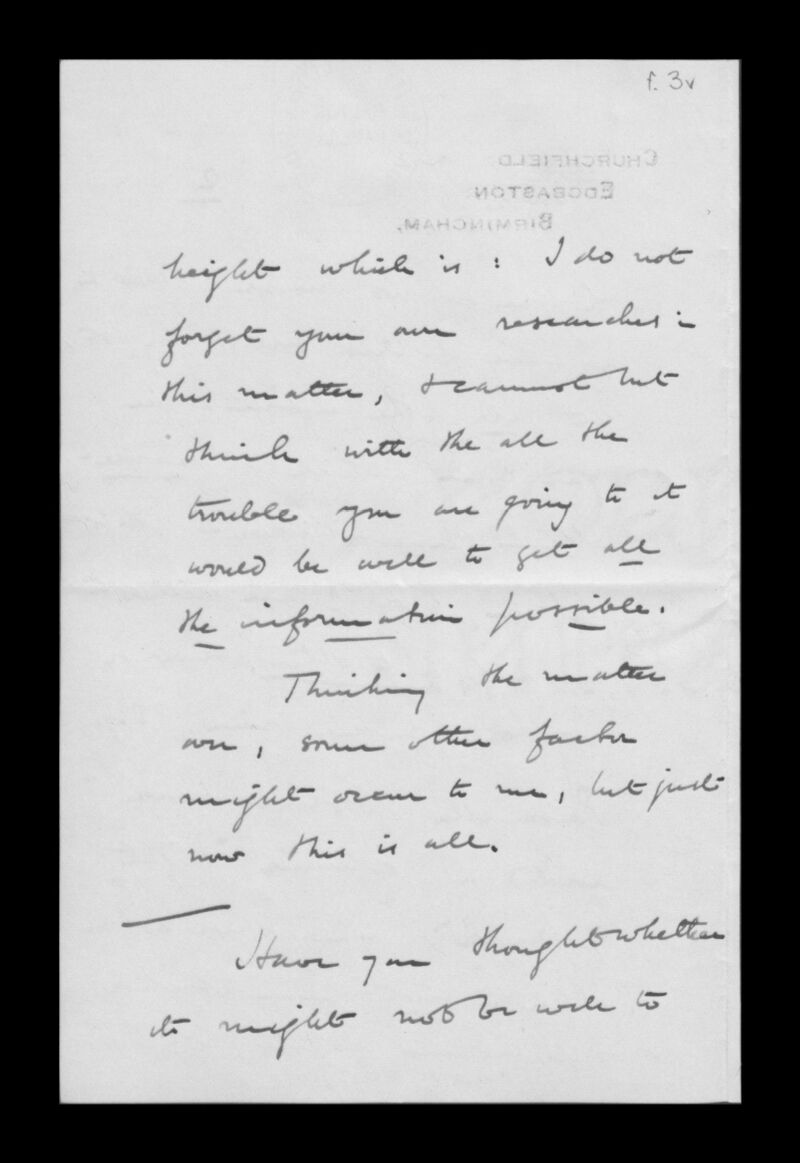 f. 3v
CHURCHFIELD.
EDGBASTON.
BIRMINGHAM.
2
height which is : I do not
forget your own researches in
this matter, & cannot but
think with the all the
trouble you are going to it
would be well to get all
the information possible.
Thinking the matter
over, some other factor
might occur to me, but just
now this is all.
Have you thought whether
it might not be well to